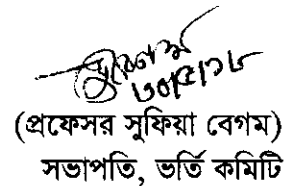 ৩০।৫।১৮
(প্রফেসর সুফিয়া বেগম)
সভাপতি, ভর্তি কমিটি